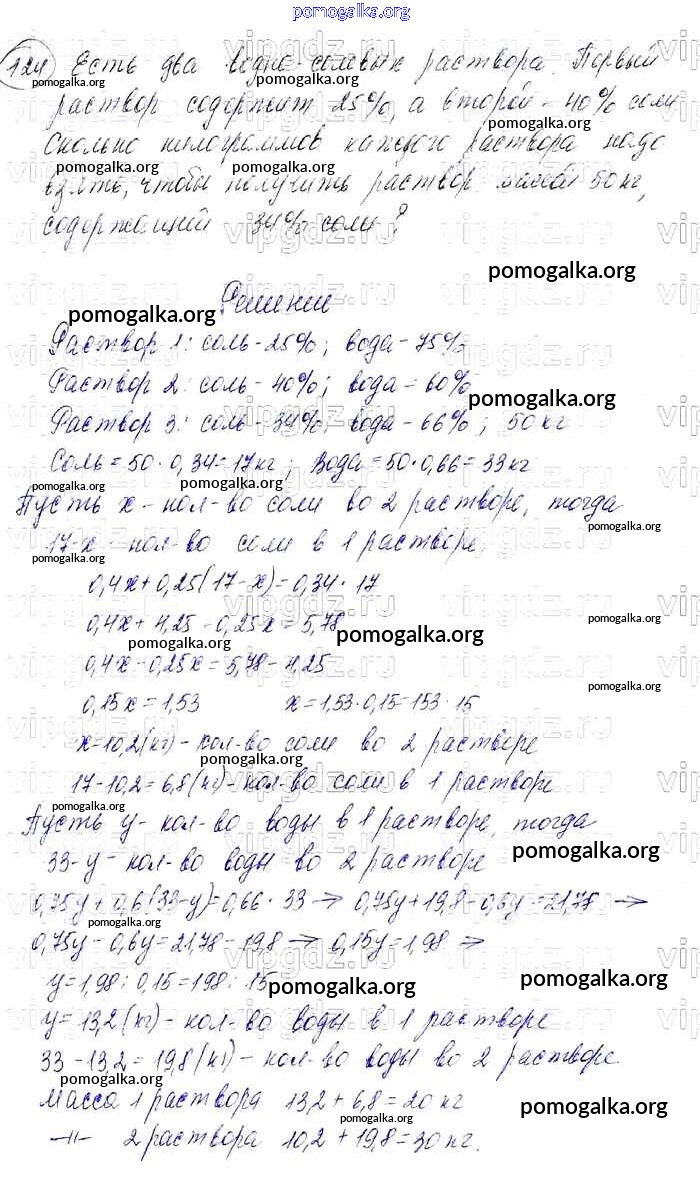 pomogalka.org
124 Есть два водно-солевых раствора. Первый
раствор содержит 25%, а второй - 40% соли
Сколько килограммов каждого раствора надо
взять, чтобы получить раствор массой 50 кг,
содержащий 34% соли?
Решение
Раствор 1: соль - 25%; вода - 75%
Раствор 2: соль - 40%; вода - 60%
Раствор 3: соль - 34%, вода - 66%; 50 кг
Соль = 50 · 0,34 = 17 кг; Вода = 50 · 0,66 = 33 кг
Пусть x - кол-во соли во 2 растворе, тогда
17-x - кол-во соли в 1 растворе.
0,4x + 0,25(17-x) = 0,34 · 17
0,4x + 4,25 - 0,25x = 5,78
0,4x - 0,25x = 5,78 - 4,25
0,15x = 1,53 x = 1,53 · 0,15 = 153 · 15
x = 10,2 (кг) - кол-во соли во 2 растворе
17 - 10,2 = 6,8 (кг) - кол-во соли в 1 растворе
Пусть y - кол-во воды в 1 растворе, тогда
33-y - кол-во воды во 2 растворе
0,75y + 0,6(33-y) = 0,66 · 33 → 0,75y + 19,8 - 0,6y = 21,78 →
0,75y - 0,6y = 21,78 - 19,8 → 0,15y = 1,98 →
y = 1,98 : 0,15 = 198 : 15
y = 13,2 (кг) - кол-во воды в 1 растворе
33 - 13,2 = 19,8 (кг) - кол-во воды во 2 растворе
Масса 1 раствора 13,2 + 6,8 = 20 кг
-"- 2 раствора 10,2 + 19,8 = 30 кг.